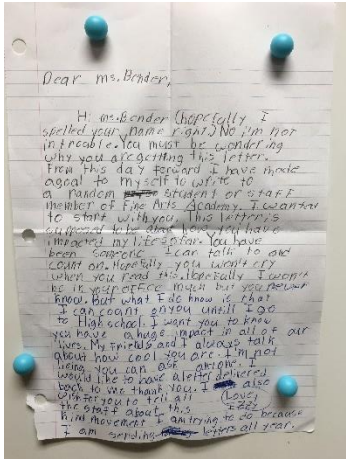 Dear ms. Bender,
Hi ms. Bender (hopefully I
spelled your name right.) No i'm not
in trouble. You must be wondering
why you are getting this letter.
From this day forward I have made
a goal to myself to write to
a random student or staff
member of Fine Arts Academy. I wanted
to start with you. This letter is
supposed to be about how you have
impacted my life so far. You have
been someone I can talk to and
count on. Hopefully you won't cry
when you read this. Hopefully I won't
be in your office much but you never
know. But what I do know is that
I can count on you until I go
to High school. I want you to know
you have a huge impact in all of our
lives. My friends and I always talk
about how cool you are. I'm not
lieing you can ask anyone. I
would like to have a letter delivered
back to me thank you. I also
wish for you to tell all (Love,
the staff about this Izzy
kind movement I am trying to do because
I am sending letters all year.